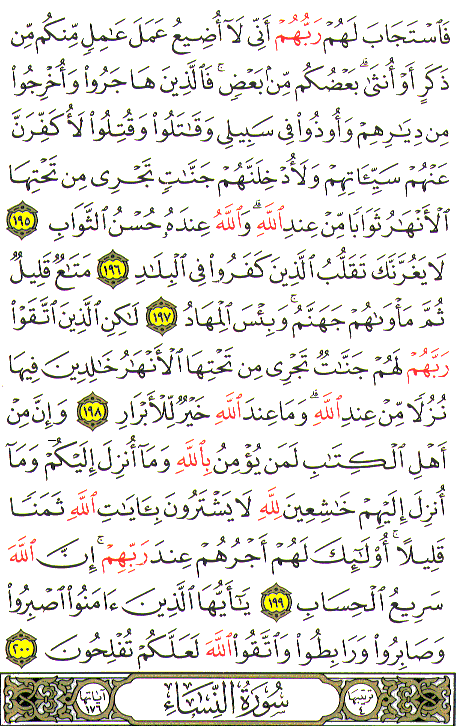 فَٱسْتَجَابَ لَهُمْ رَبُّهُمْ أَنِّي لَآ أُضِيعُ عَمَلَ عَٰمِلٍ مِّنكُم مِّن
ذَكَرٍ أَوْ أُنثَىٰ ۖ بَعْضُكُم مِّنۢ بَعْضٍ ۖ فَٱلَّذِينَ هَاجَرُوا۟ وَأُخْرِجُوا۟
مِن دِيَٰرِهِمْ وَأُوذُوا۟ فِى سَبِيلِى وَقَٰتَلُوا۟ وَقُتِلُوا۟ لَأُكَفِّرَنَّ
عَنْهُمْ سَيِّـَٔاتِهِمْ وَلَأُدْخِلَنَّهُمْ جَنَّٰتٍ تَجْرِى مِن تَحْتِهَا
ٱلْأَنْهَٰرُ ثَوَابًا مِّنْ عِندِ ٱللَّهِ ۗ وَٱللَّهُ عِندَهُۥ حُسْنُ ٱلثَّوَابِ ١٩٥
لَا يَغُرَّنَّكَ تَقَلُّبُ ٱلَّذِينَ كَفَرُوا۟ فِى ٱلْبِلَٰدِ ١٩٦ مَتَٰعٌ قَلِيلٌ
ثُمَّ مَأْوَىٰهُمْ جَهَنَّمُ ۚ وَبِئْسَ ٱلْمِهَادُ ١٩٧ لَٰكِنِ ٱلَّذِينَ ٱتَّقَوْا۟
رَبَّهُمْ لَهُمْ جَنَّٰتٌ تَجْرِى مِن تَحْتِهَا ٱلْأَنْهَٰرُ خَٰلِدِينَ فِيهَا
نُزُلًا مِّنْ عِندِ ٱللَّهِ ۗ وَمَا عِندَ ٱللَّهِ خَيْرٌ لِّلْأَبْرَارِ ١٩٨ وَإِنَّ مِنْ
أَهْلِ ٱلْكِتَٰبِ لَمَن يُؤْمِنُ بِٱللَّهِ وَمَآ أُنزِلَ إِلَيْكُمْ وَمَآ
أُنزِلَ إِلَيْهِمْ خَٰشِعِينَ لِلَّهِ لَا يَشْتَرُونَ بِـَٔايَٰتِ ٱللَّهِ ثَمَنًا
قَلِيلًا ۗ أُو۟لَٰٓئِكَ لَهُمْ أَجْرُهُمْ عِندَ رَبِّهِمْ ۗ إِنَّ ٱللَّهَ
سَرِيعُ ٱلْحِسَابِ ١٩٩ يَٰٓأَيُّهَا ٱلَّذِينَ ءَامَنُوا۟ ٱصْبِرُوا۟
وَصَابِرُوا۟ وَرَابِطُوا۟ وَٱتَّقُوا۟ ٱللَّهَ لَعَلَّكُمْ تُفْلِحُونَ ٢٠٠
ترتيبها ٤ سُورَةُ ٱلنِّسَاءِ آياتها ١٧٦